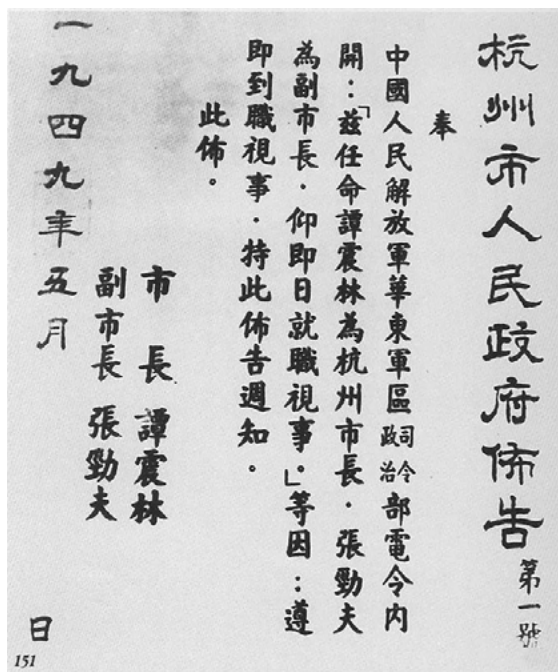 杭州市人民政府佈告第一號
奉
中國人民解放軍華東軍區司令政治部電令內
開：「茲任命譚震林為杭州市長．張勁夫
為副市長．仰即日就職視事。」等因：遵
即到職視事．持此佈告週知。
此佈。
市長 譚震林
副市長 張勁夫
一九四九年五月 日
151